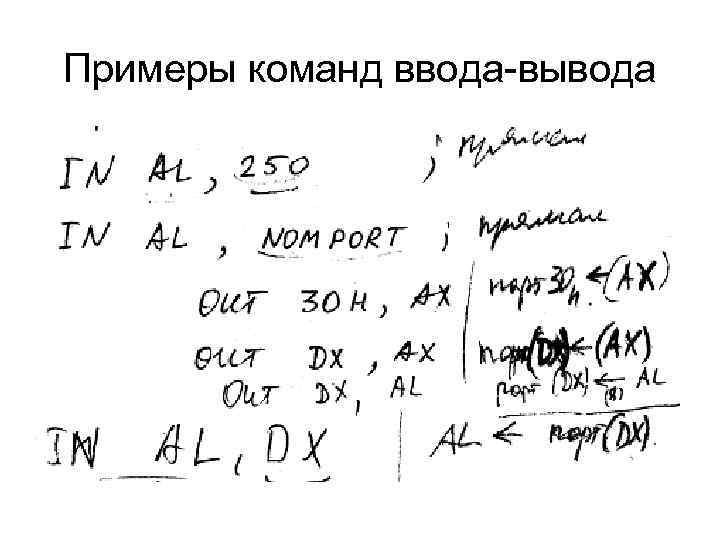 Примеры команд ввода-вывода
IN AL, 250 ; прямая
IN AL, NOMPORT ; прямая
OUT 30H, AX | порт 30h. ← (AX)
OUT DX, AX | порт(DX) ← (AX)
OUT DX, AL порт (DX) ← AL
(8)
IN AL, DX | AL ← порт(DX)